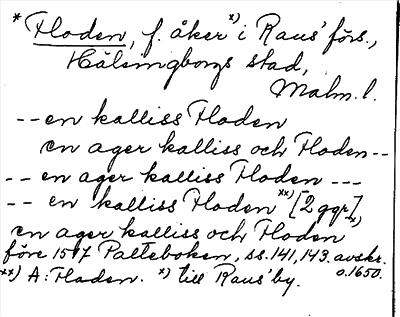 * Floden, f. åker x) i Raus' förs.,
Hälsingborgs stad,
Malm. l.
-- en kalliss Floden
en ager kalliss och Floden --
-- en ager kalliss Floden ---
-- en kalliss Floden xx) [2 ggr] x)
en ager kalliss och Floden
före 1517 Palteboken, ss. 141, 143. avskr.
o. 1650.
xx) A: Fladen. x) till Raus' by.